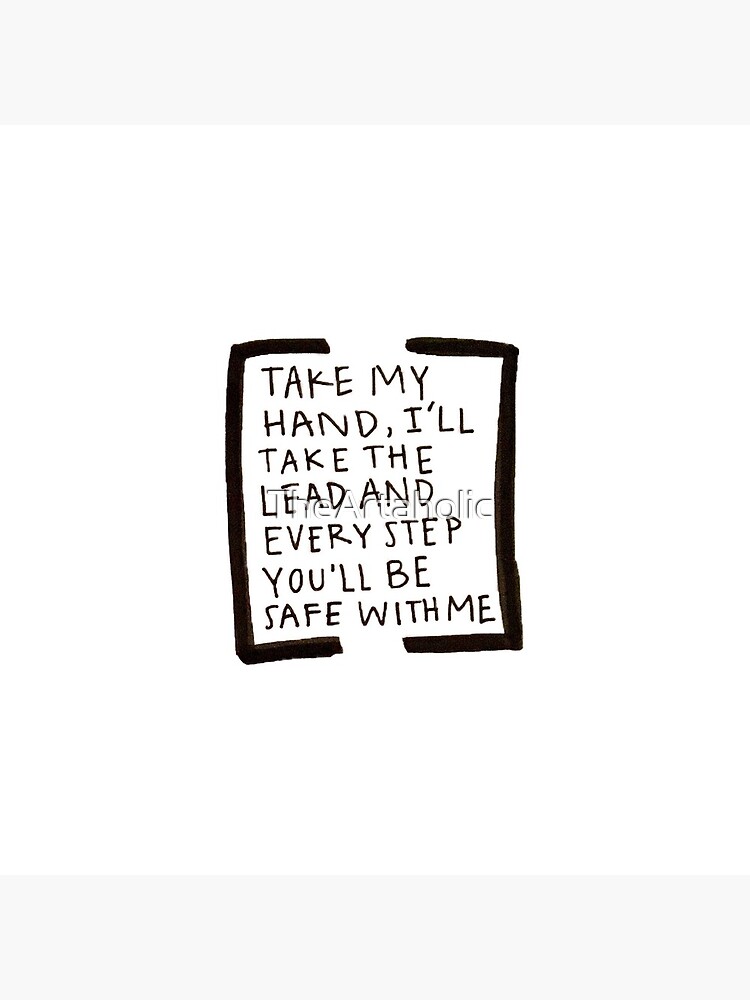 TAKE MY
HAND, I'LL
TAKE THE
LEAD AND
TheArtaholic
EVERY STEP
YOU'LL BE
SAFE WITH ME